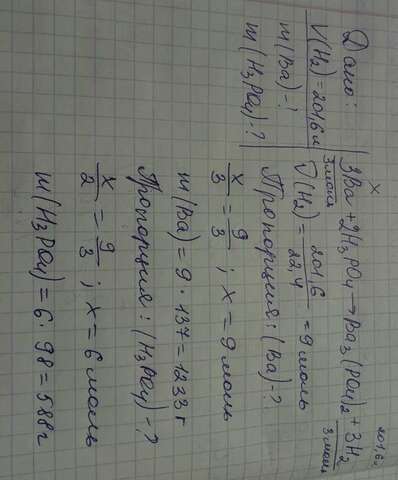 Дано:
V(H2)=201,6л
m(Ba)-?
m(H3PO4)-?
x 201,6
3Ba+2H3PO4→Ba3(PO4)2+3H2
3моля 3моль
ν(H2)=201,6/22,4=9моль
Пропорция:(Ba)-?
x/3=9/3; x=9моль
m(Ba)=9·137=1233г
Пропорция:(H3PO4)-?
x/2=9/3; x=6моль
m(H3PO4)=6·98=588г